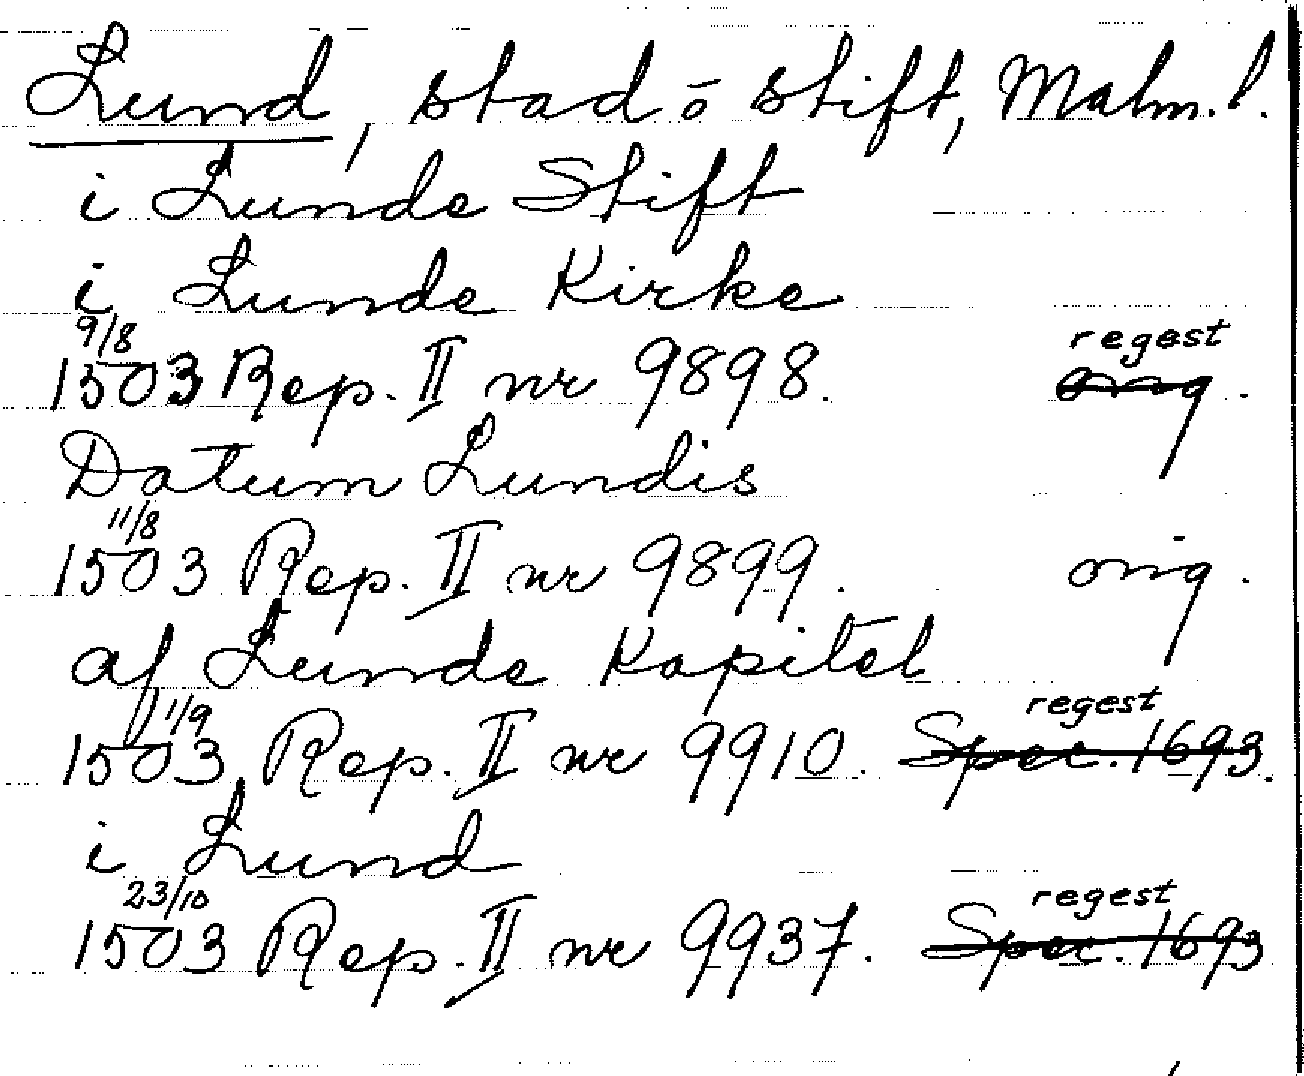 Lund, stad o stift, Malm. l.
i Lunde Stift
i Lunde Kirke
9/8 regest
1503 Rep. II nr 9898. orig.
Datum Lundis
11/8
1503 Rep. II nr 9899. orig.
af Lunde Kapitel
11/9 regest
1503 Rep. II nr 9910. Spec. 1693.
i Lund
23/10 regest
1503 Rep. II nr 9937. Spec. 1693